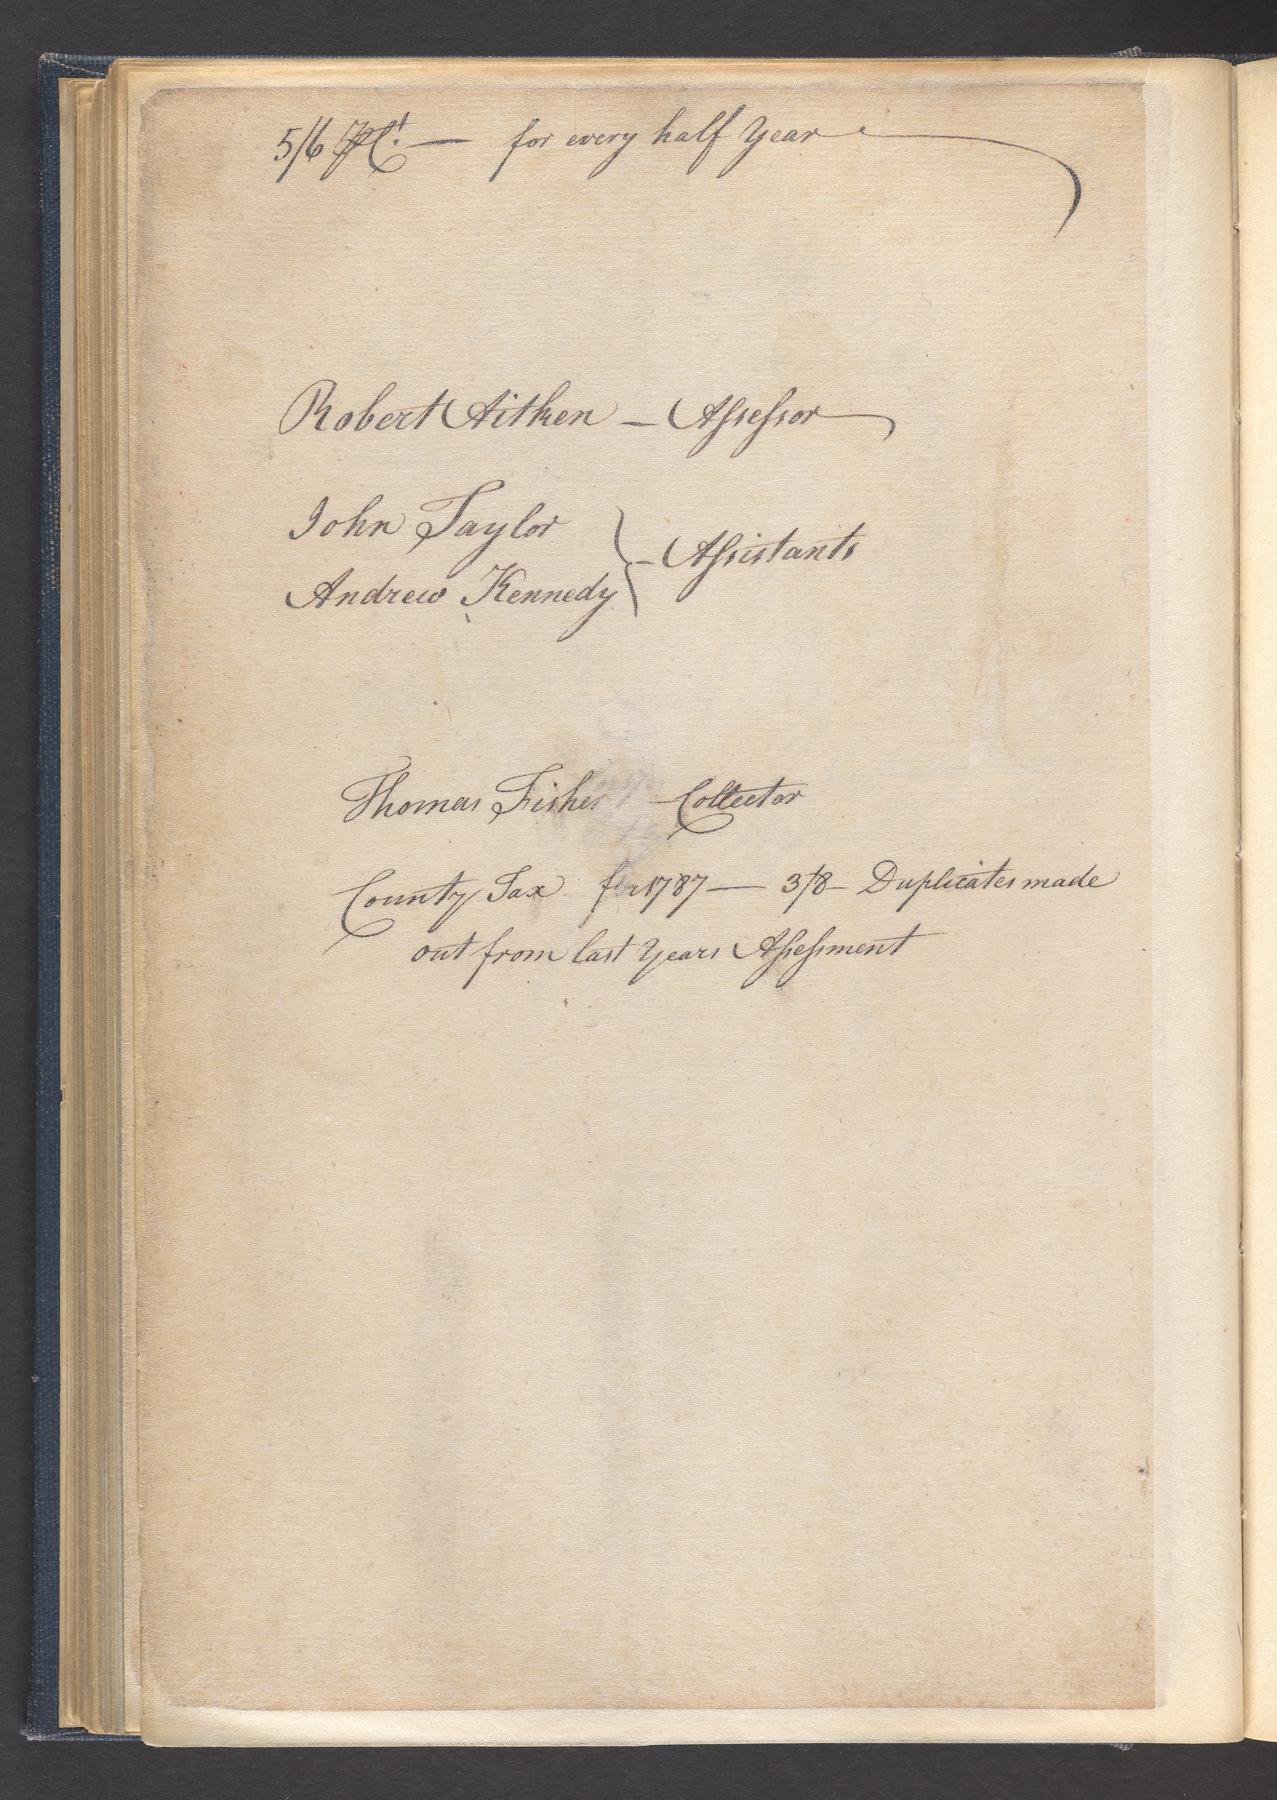 5/6 ⅌ Ct. — for every half Year
Robert Aitken — Assessor
John Taylor
Andrew Kennedy } — Assistants
Thomas Fisher — Collector
County Tax for 1787 — 3/8 — Duplicates made
out from last Years Assessment